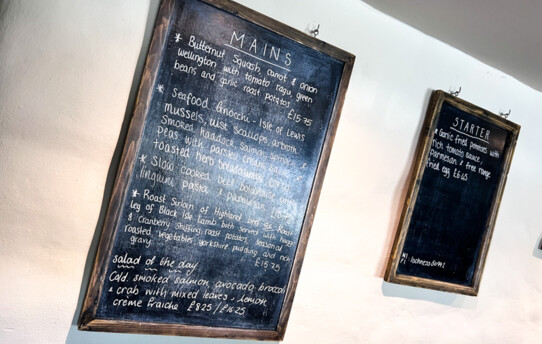 MAINS
* Butternut Squash, carrot & onion
wellington with tomato ragu, green
beans and garlic roast potatoes
£15.75
* Seafood Gnocchi - Isle of Lewis
mussels, uist scallops, arbroth
smoked haddock, samphire &
peas with parsley cream sauce &
toasted herb breadcrumb
* Slow cooked beef bolognese
linguini pasta & parmesan
* Roast Sirloin of Highland beef Roast
leg of Black Isle lamb both served with nugget
& cranberry stuffing, roast potatoes, seasonal
roasted vegetables, yorkshire pudding and rich
gravy £15.75
salad of the day
Cold smoked salmon, avocado, broccoli
& crab with mixed leaves, lemon
crème fraiche £8.25 / £16.25
STARTER
* Garlic fried potatoes with
rich tomato sauce,
parmesan & free range
fried egg £6.45